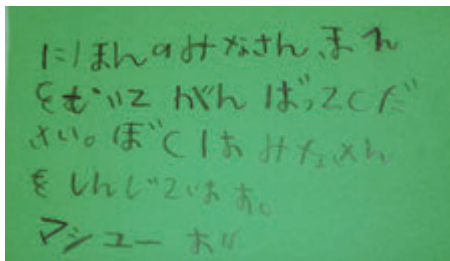 にほんのみなさん、まえ
をむいて がんばってくだ
さい。ぼくは みなさん
を しんじています。
マシュー